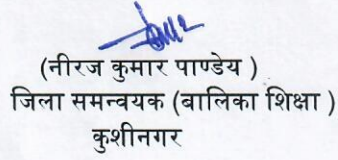 (नीरज कुमार पाण्डेय )
जिला समन्वयक (बालिका शिक्षा )
कुशीनगर